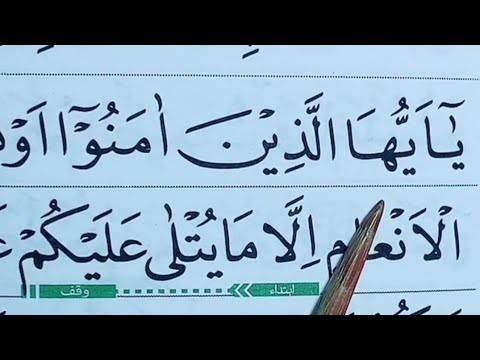 يٰٓاَيُّهَا الَّذِيْنَ اٰمَنُوْٓا اَوْ
الْاَنْعَامِ اِلَّا مَا يُتْلٰى عَلَيْكُمْ
ابتداء وقف